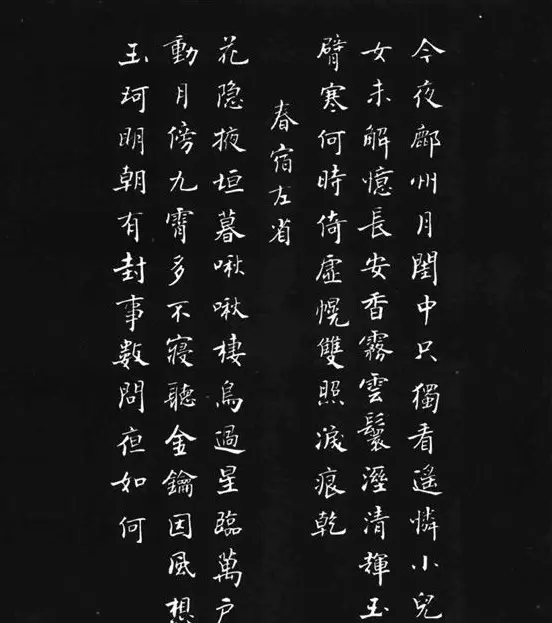 今夜鄜州月閨中只獨看遙憐小兒
女未解憶長安香霧雲鬟溼清輝玉
臂寒何時倚虛幌雙照淚痕乾
春宿左省
花隐掖垣暮啾啾棲鳥過星臨萬戶
動月傍九霄多不寢聽金鑰因風想
玉珂明朝有封事數問夜如何